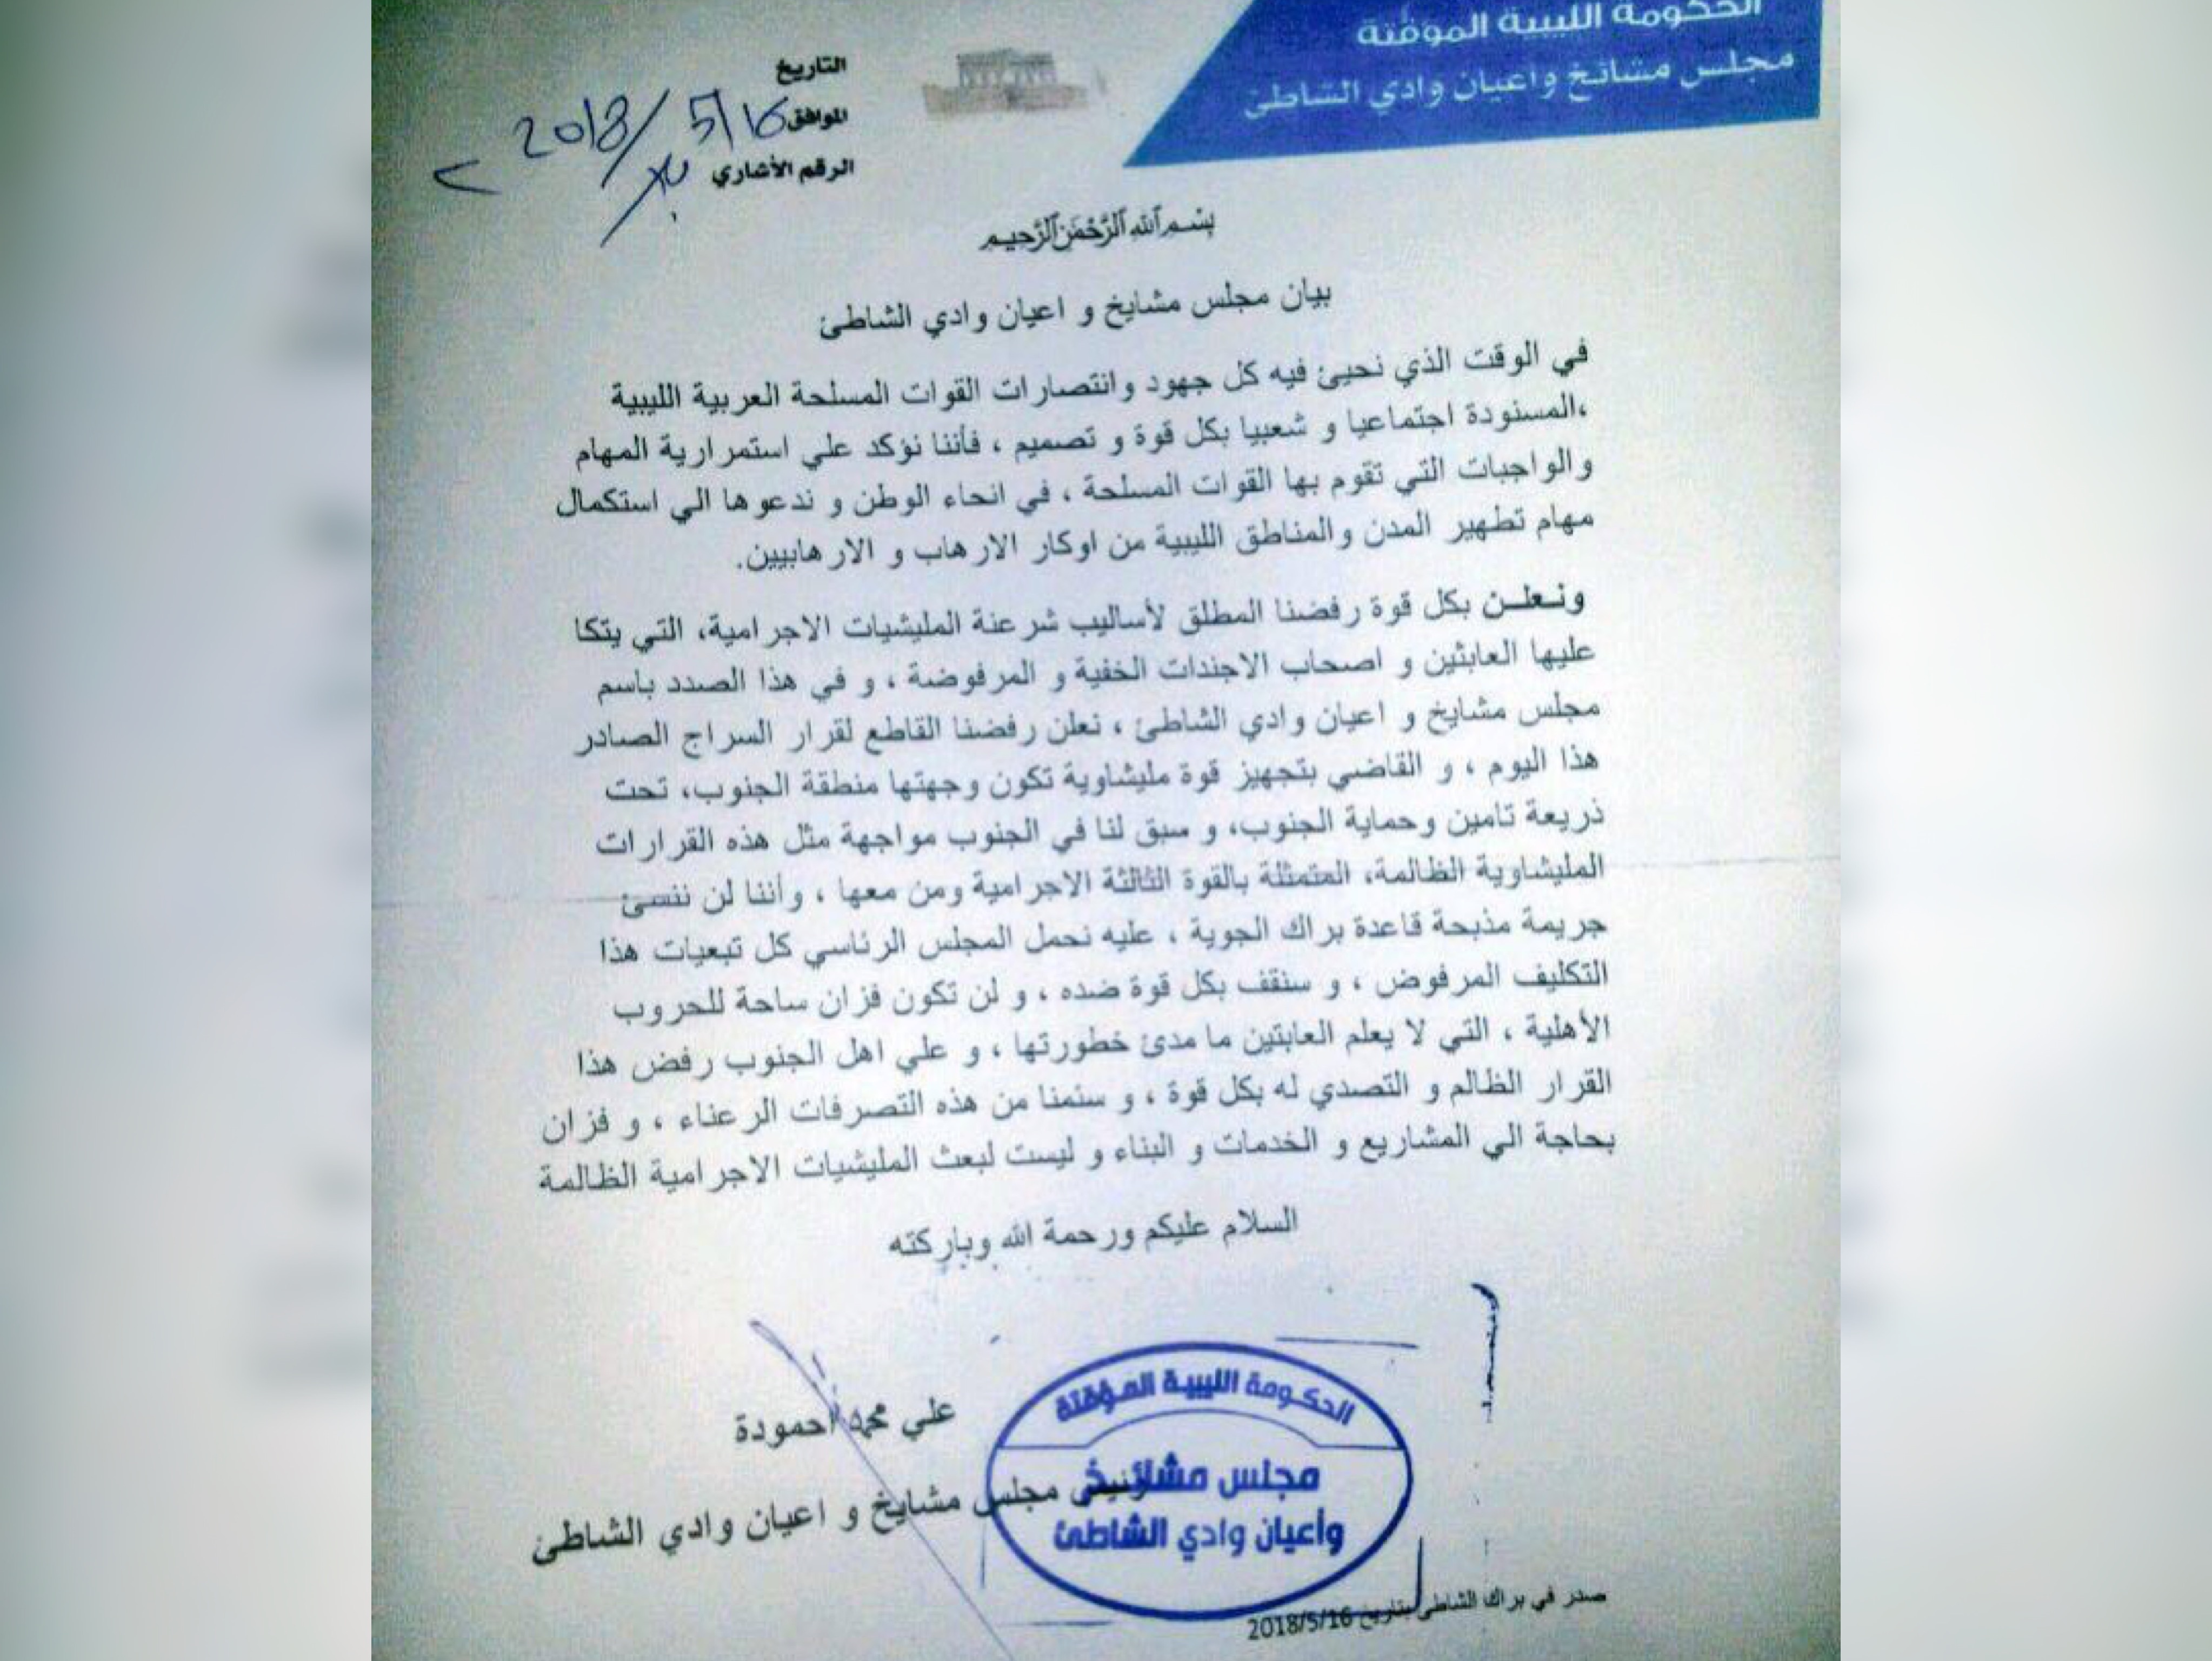 الحكومة الليبية الموقتة
مجلس مشائخ واعيان وادي الشاطئ
التاريخ
الموافق 2018/5/16
الرقم الأشاري
بسم الله الرحمن الرحيم
بيان مجلس مشايخ و اعيان وادي الشاطئ
في الوقت الذي نحيئ فيه كل جهود وانتصارات القوات المسلحة العربية الليبية
،المسنودة اجتماعيا و شعبيا بكل قوة و تصميم ، فأننا نؤكد علي استمرارية المهام
والواجبات التي تقوم بها القوات المسلحة ، في انحاء الوطن و ندعوها الي استكمال
مهام تطهير المدن والمناطق الليبية من اوكار الارهاب و الارهابيين.
ونعلــن بكل قوة رفضنا المطلق لأساليب شرعنة المليشيات الاجرامية، التي يتكا
عليها العابثين و اصحاب الاجندات الخفية و المرفوضة ، و في هذا الصدد باسم
مجلس مشايخ و اعيان وادي الشاطئ ، نعلن رفضنا القاطع لقرار السراج الصادر
هذا اليوم ، و القاضي بتجهيز قوة مليشاوية تكون وجهتها منطقة الجنوب، تحت
ذريعة تامين وحماية الجنوب، و سبق لنا في الجنوب مواجهة مثل هذه القرارات
المليشاوية الظالمة، المتمثلة بالقوة الثالثة الاجرامية ومن معها ، وأننا لن ننسئ
جريمة مذبحة قاعدة براك الجوية ، عليه نحمل المجلس الرئاسي كل تبعيات هذا
التكليف المرفوض ، و سنقف بكل قوة ضده ، و لن تكون فزان ساحة للحروب
الأهلية ، التي لا يعلم العابتين ما مدئ خطورتها ، و علي اهل الجنوب رفض هذا
القرار الظالم و التصدي له بكل قوة ، و سئمنا من هذه التصرفات الرعناء ، و فزان
بحاجة الي المشاريع و الخدمات و البناء و ليست لبعث المليشيات الاجرامية الظالمة
السلام عليكم ورحمة الله وباركته
علي محمد احمودة
رئيس مجلس مشايخ و اعيان وادي الشاطئ
الحكومة الليبية المؤقتة
مجلس مشائخ
وأعيان وادي الشاطئ
صدر في براك الشاطئ بتاريخ 2018/5/16